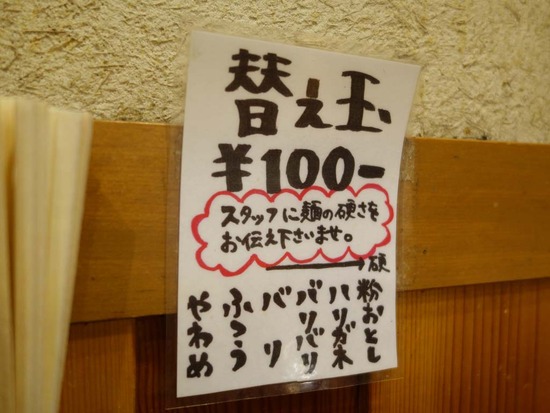 替え玉
¥100-
スタッフに麺の硬さを
お伝え下さいませ。
→硬
粉おとし
ハリガネ
バリバリ
バリ
ふつう
やわめ